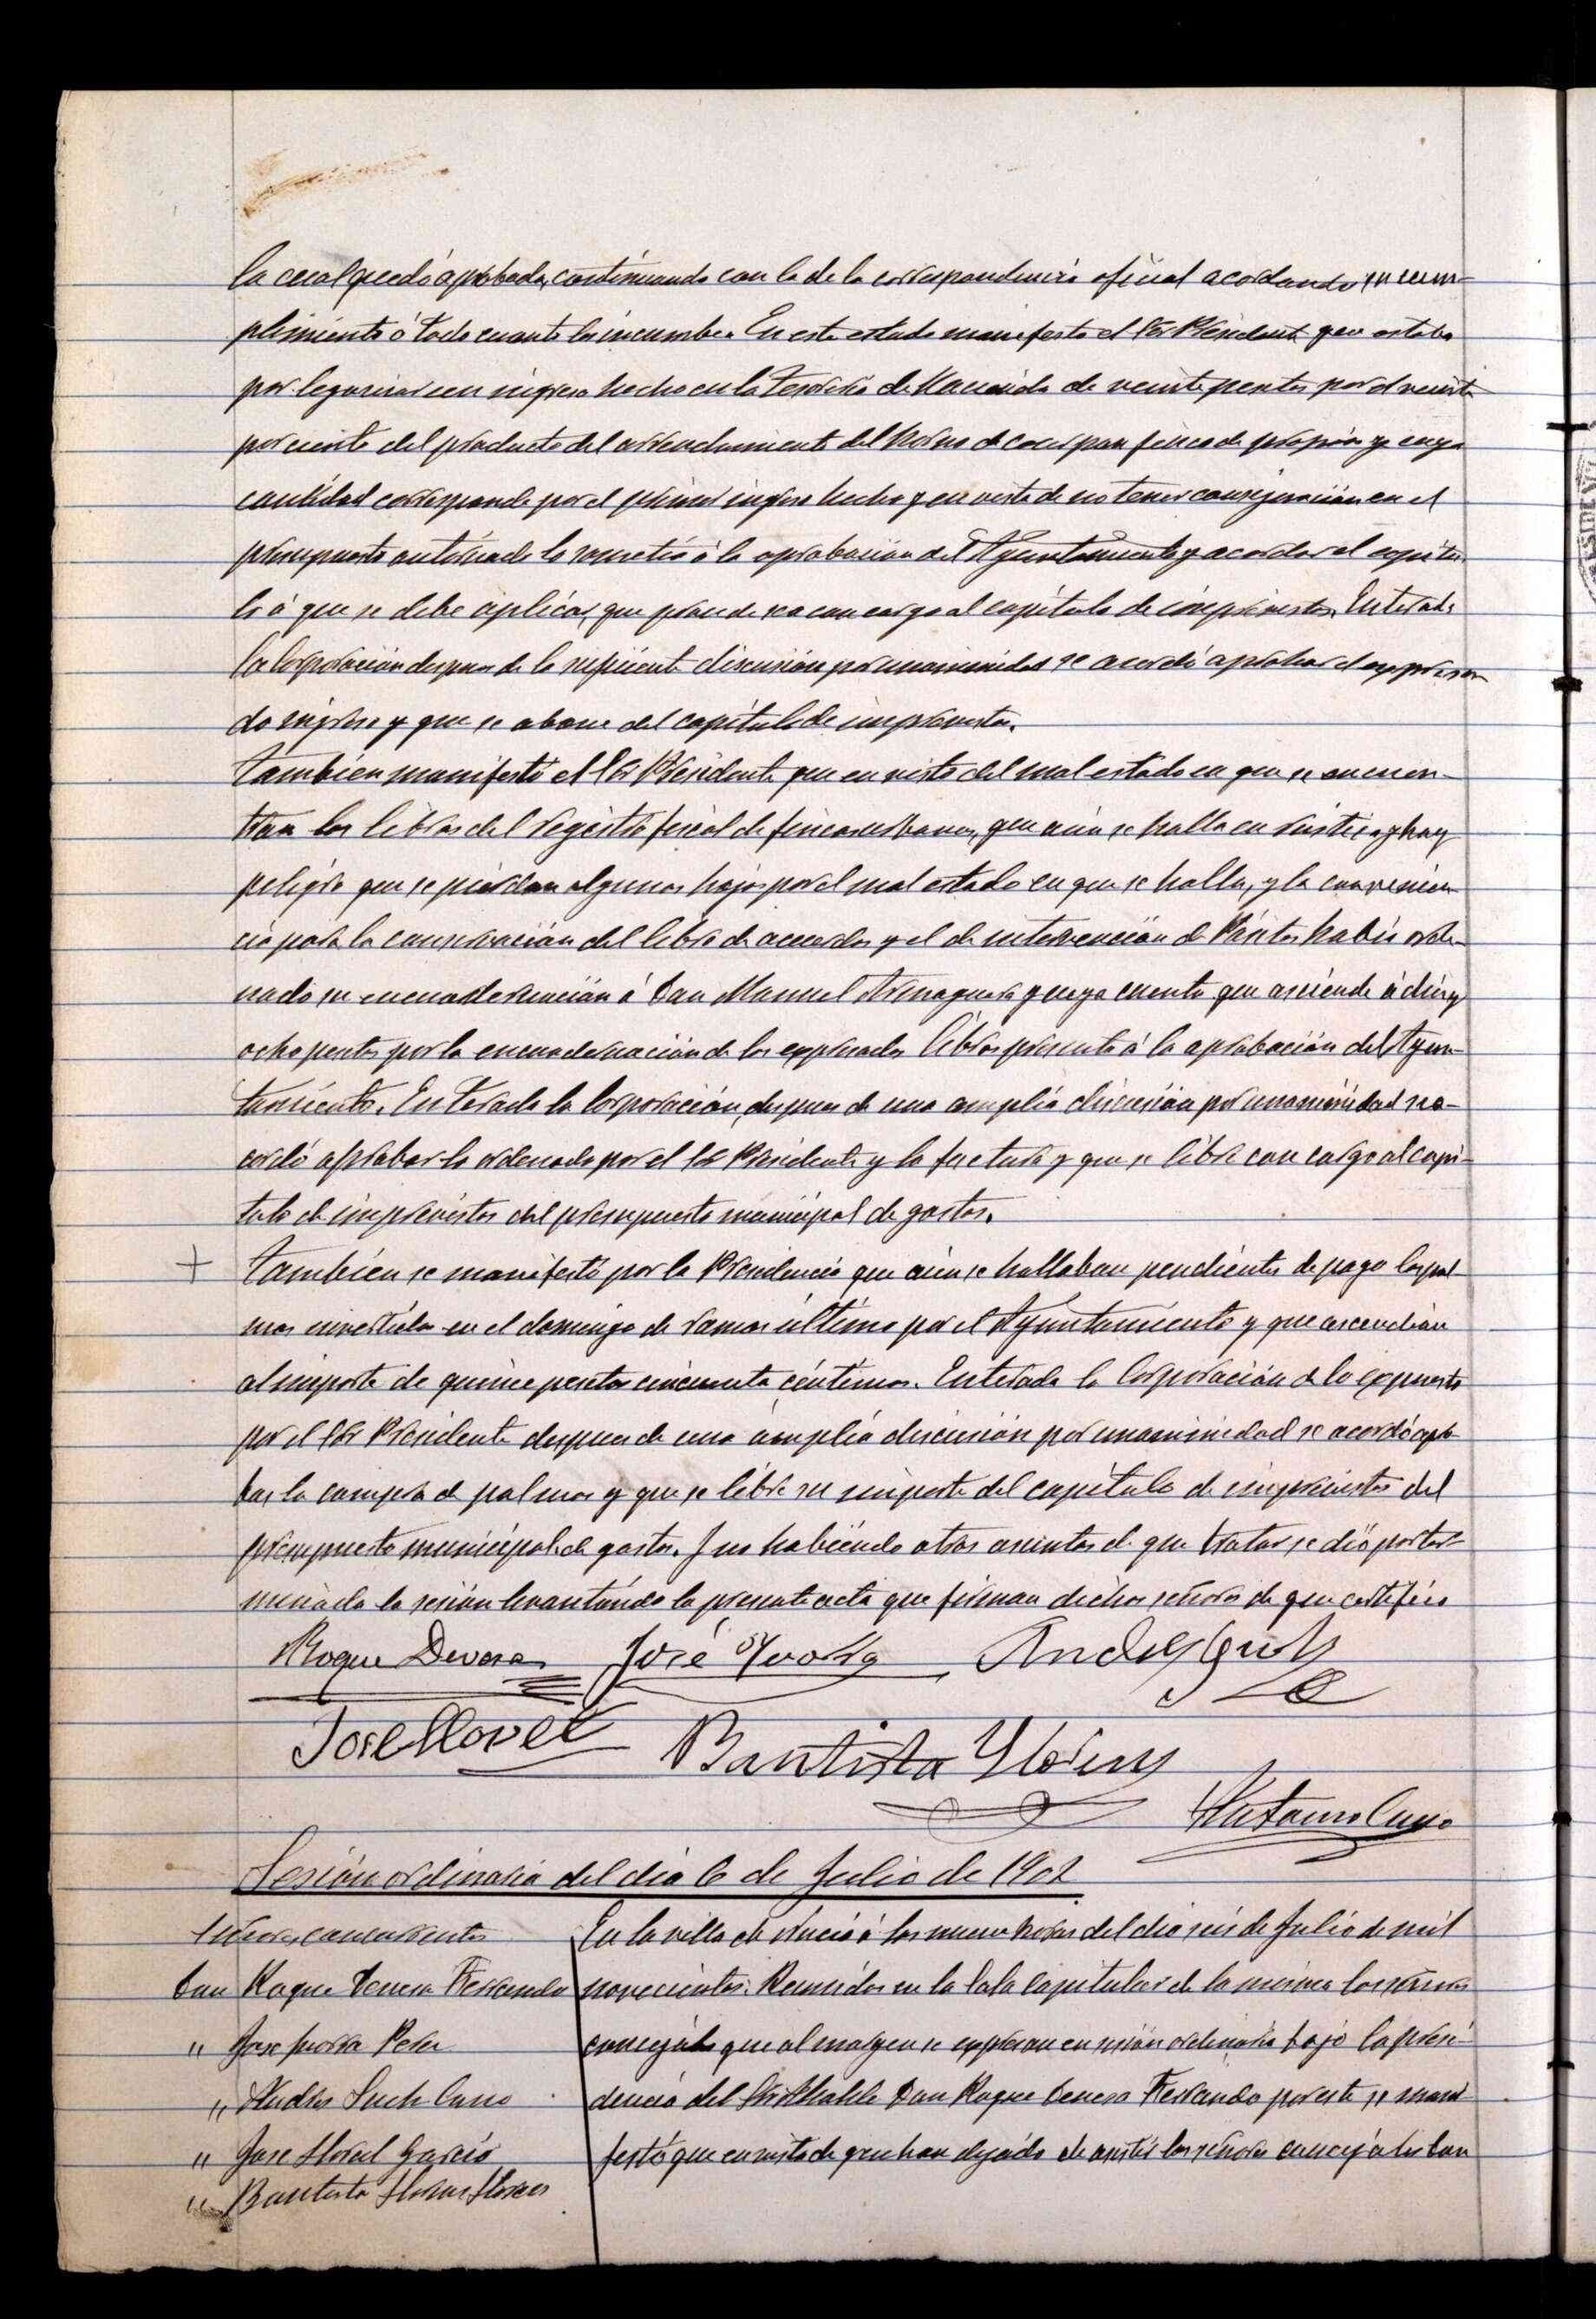 la cual quedó aprobada, continuando con la de la correspondencia oficial acordando su cum-
plimiento á todo cuanto les incumbe. En este estado manifestó el Sór Presidente que estaba
por legarizar un ingreso hecho en la Tesorería de Hacienda de veinte pesetas por el veinte
por ciento del producto del arrendamiento del horno de cocer pan finca de propios y cuya
cantidad corresponde por el primer ingreso hecho y en vista de no tener consignación en el
presupuesto autorizado lo sometía á la aprobación del Ayuntamiento y acordar el capitu-
lo á que se debe aplicar, que puede sea con cargo al capítulo de imprevistos. Enterada
la Corporación despues de la suficiente discusión por unanimidad se acordó aprobar el expresa-
do ingreso y que se abone del capítulo de imprevistos.
También manifestó el Sór Presidente que en vista del mal estado en que se encuen-
tran los libros del registro fiscal de fincas urbanas, que aún se halla en rústica y hay
peligro que se pierdan algunas hojas por el mal estado en que se halla, y la convenien-
cia para la conservación del libro de acuerdos y el de intervención de había orde-
nado su encuadernación á Don Manuel y cuya cuenta que asciende á diez y
ocho pesetas por la encuadernación de los expresados libros presenta á la aprobación del Ayun-
tamiento. Enterada la Corporación, despues de una amplia discusión por unanimidad se a-
cordó aprobar lo ordenado por el Sór Presidente y la factura y que se libre con cargo al capí-
tulo de imprevistos del presupuesto municipal de gastos.
+ También se manifestó por la Presidencia que aún se hallaban pendientes de pago las pal-
mas invertidas en el domingo de ramos último por el Ayuntamiento y que ascendían
al importe de quince pesetas cincuenta céntimos. Enterada la Corporación de lo expuesto
por el Sór Presidente despues de una amplia discusión por unanimidad se acordó apro-
bar la compra de palmas y que se libre su importe del capítulo de imprevistos del
presupuesto municipal de gastos. Y no habiendo otros asuntos de que tratar se dió por ter-
minada la sesión levantándo la presente acta que firman dichos señores de que certifico
Roque Devesa José Ivorra Andres Such
Jose Lloret Bautista Llorens
Sesión ordinaria del día 6 de Julio de 1902
Señores concurrentes
Don Roque Devesa Ferrando
" Jose Ivorra Peres
" Andres Such Cano
" Jose Lloret García
" Bautista Llorens Llorens
En la villa de á las nueve horas del día seis de Julio de mil
novecientos. Reunidos en la Sala Capitular de la misma los señores
concejales que al margen se expresan en sesión ordinaria bajo la presi-
dencia del Sór Alcalde Don Roque Devesa Ferrando por este se mani-
festó que en vista de que han dejado de asistir los señores concejales Don